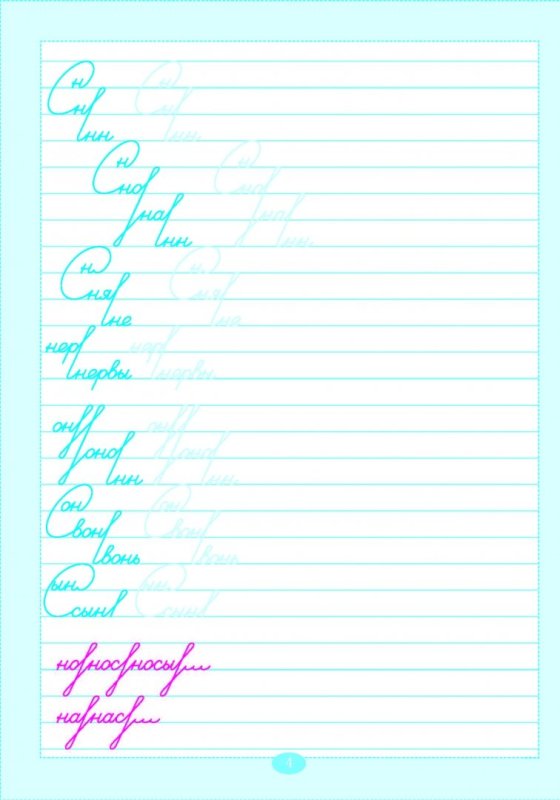 н н
н н
нн нн
н н
но но
на на
нн нн
н н
ня ня
не
нер нер
нервы нервы
он он
оно оно
нн нн
он он
вон вон
вонь вонь
ын ын
сын сын
но нос носы...
на нас ...
4